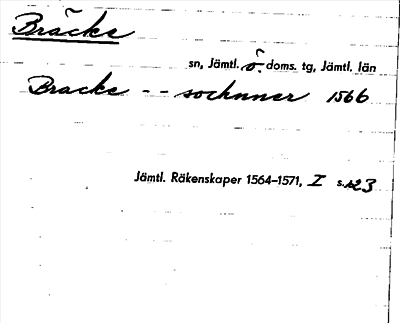 Bräcke
sn, Jämtl. ö. doms. tg, Jämtl. län
Bracke -- sochnner 1566
Jämtl. Räkenskaper 1564–1571, I s. 123